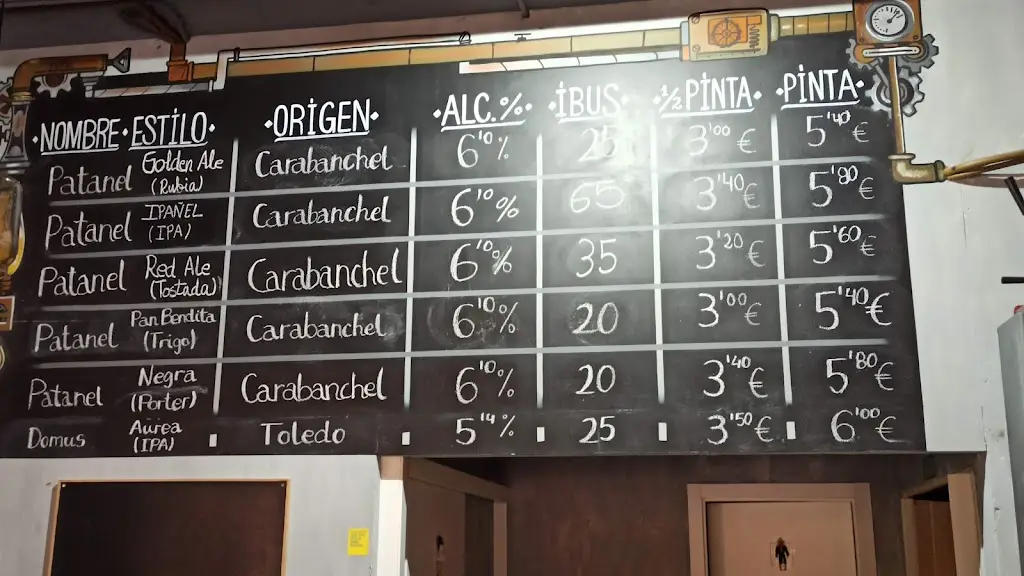 ·NOMBRE·ESTİLO· ·ORİGEN· ·ALC.%· ·İBUS· ·½ PİNTA· ·PİNTA·
Patanel Golden Ale (Rubia) Carabanchel 6'10% 25 3'00 € 5'40 €
Patanel IPAÑEL (IPA) Carabanchel 6'10% 65 3'40 € 5'80 €
Patanel Red Ale (Tostada) Carabanchel 6'10% 35 3'20 € 5'60 €
Patanel Pan Bendita (Trigo) Carabanchel 6'10% 20 3'00 € 5'40 €
Patanel Negra (Porter) Carabanchel 6'10% 20 3'40 € 5'80 €
Domus Aurea (IPA) Toledo 5'14% 25 3'50 € 6'00 €